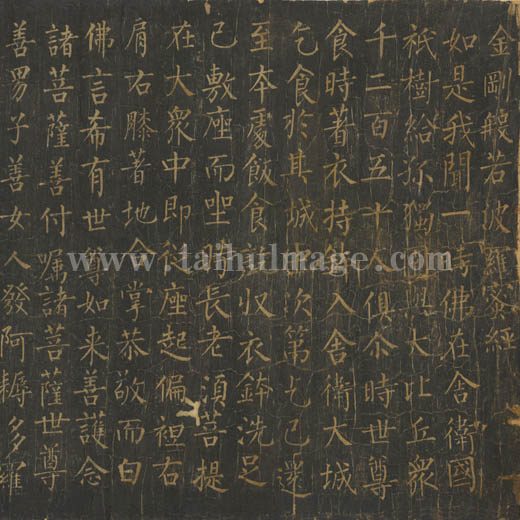 金剛般若波羅蜜經
如是我聞一時佛在舍衛國
祇樹給孤獨園與大比丘眾
千二百五十人俱尒時世尊
食時著衣持鉢入舍衛大城
乞食於其城中次第乞已還
至本處飯食訖収衣鉢洗足
已敷座而坐時長老須菩提
在大眾中即從座起偏袒右
肩右膝著地合掌恭敬而白
佛言希有世尊如来善護念
諸菩薩善付嘱諸菩薩世尊
善男子善女人發阿耨多羅
www.taihuImage.com